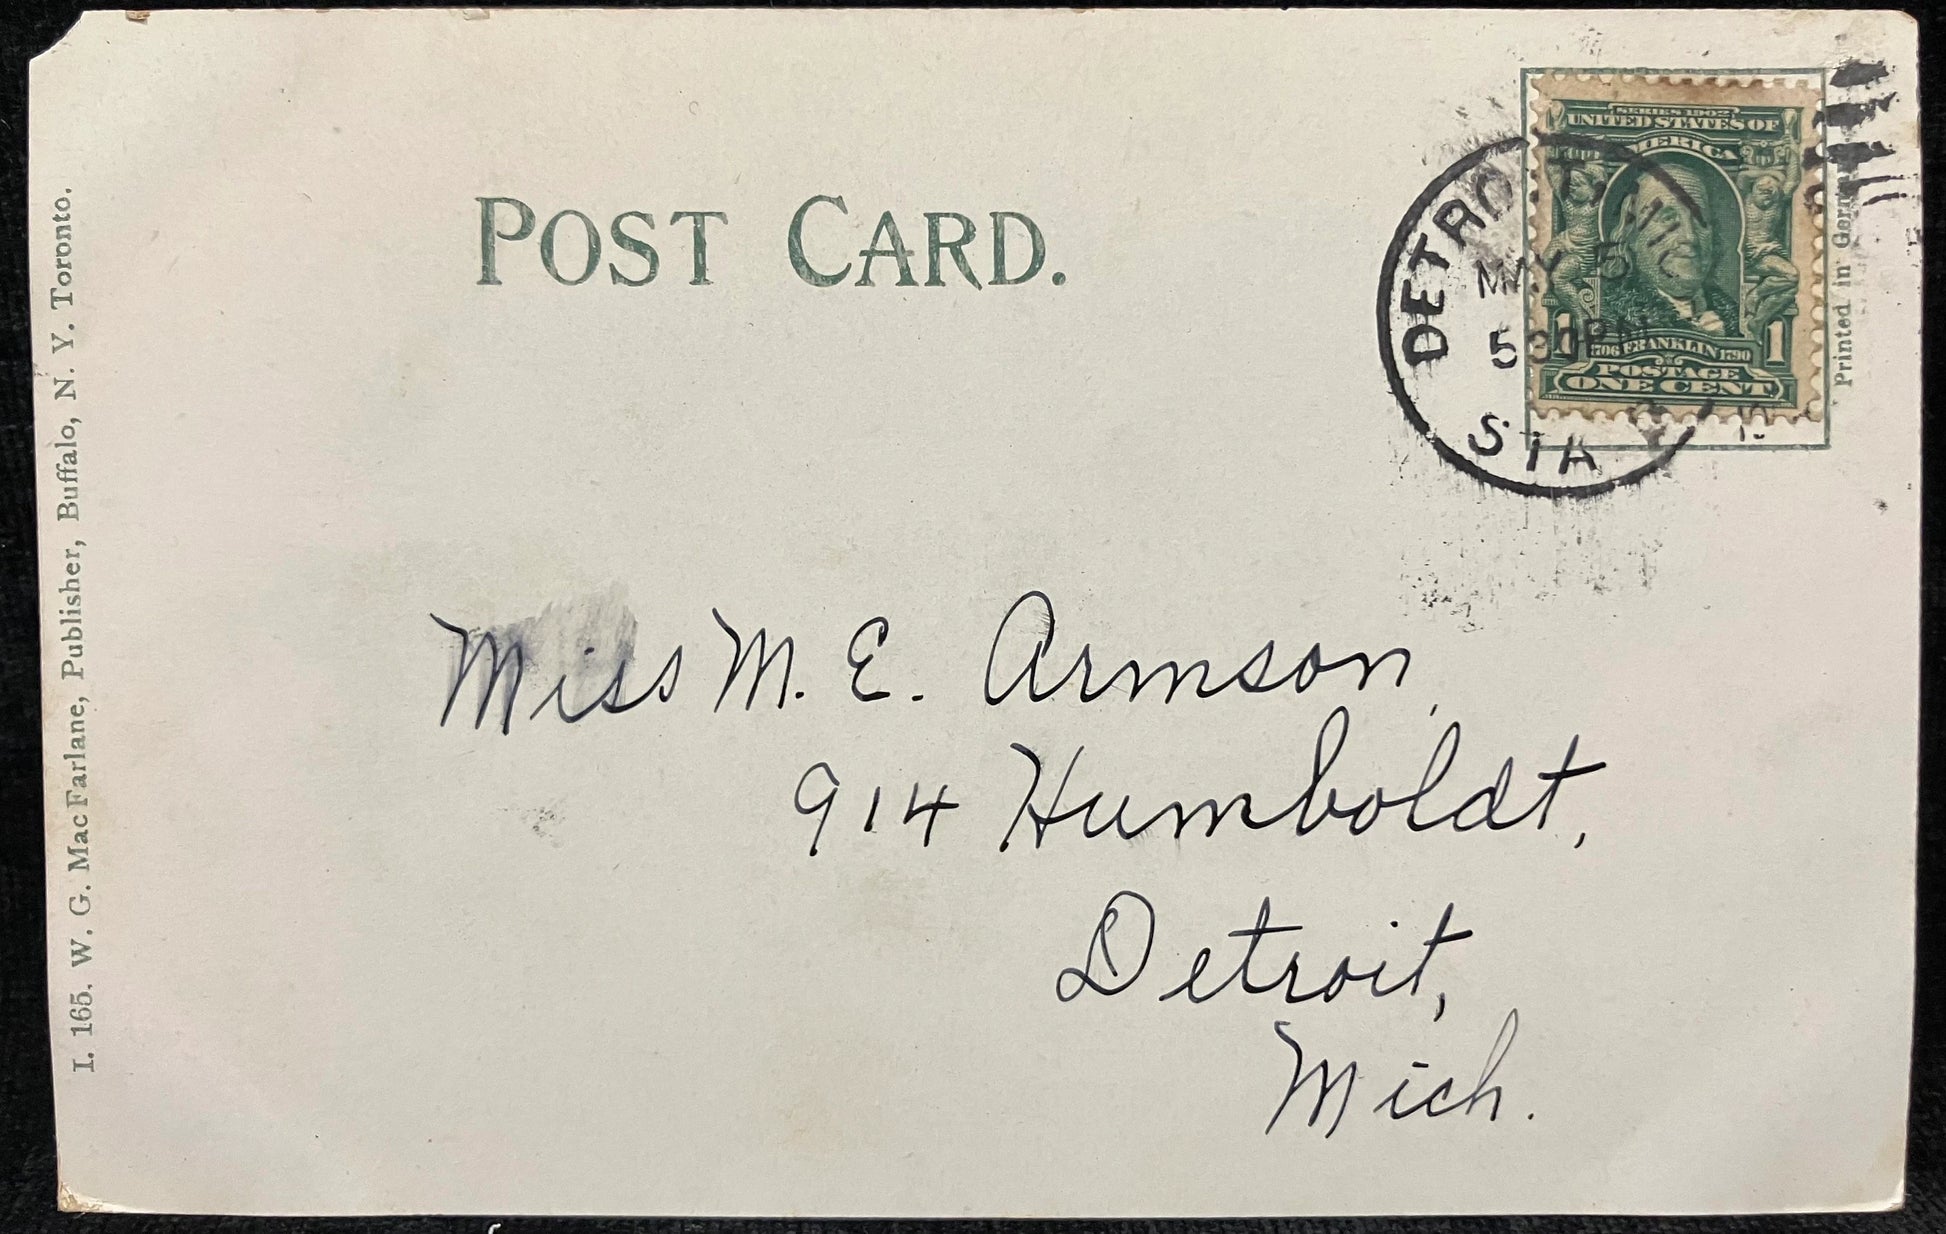 POST CARD.
SERIES 1902
UNITED STATES OF
AMERICA
1 1
1706 FRANKLIN 1790
POSTAGE
ONE CENT
DETROIT, MICH
MAY 5
530PM
STA
Printed in
Miss M. E. Armson,
914 Humboldt,
Detroit,
Mich.
I. 165. W. G. MacFarlane, Publisher, Buffalo, N. Y. Toronto.